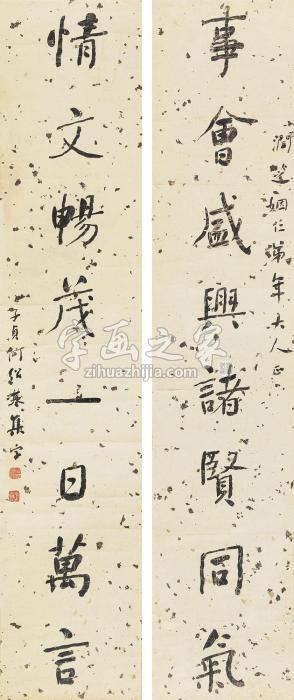 潤芝姻仁弟年大人正
事會盛興諸賢同氣
情文暢茂一日萬言
子貞何紹基集字
字画之家
zihuazhijia.com